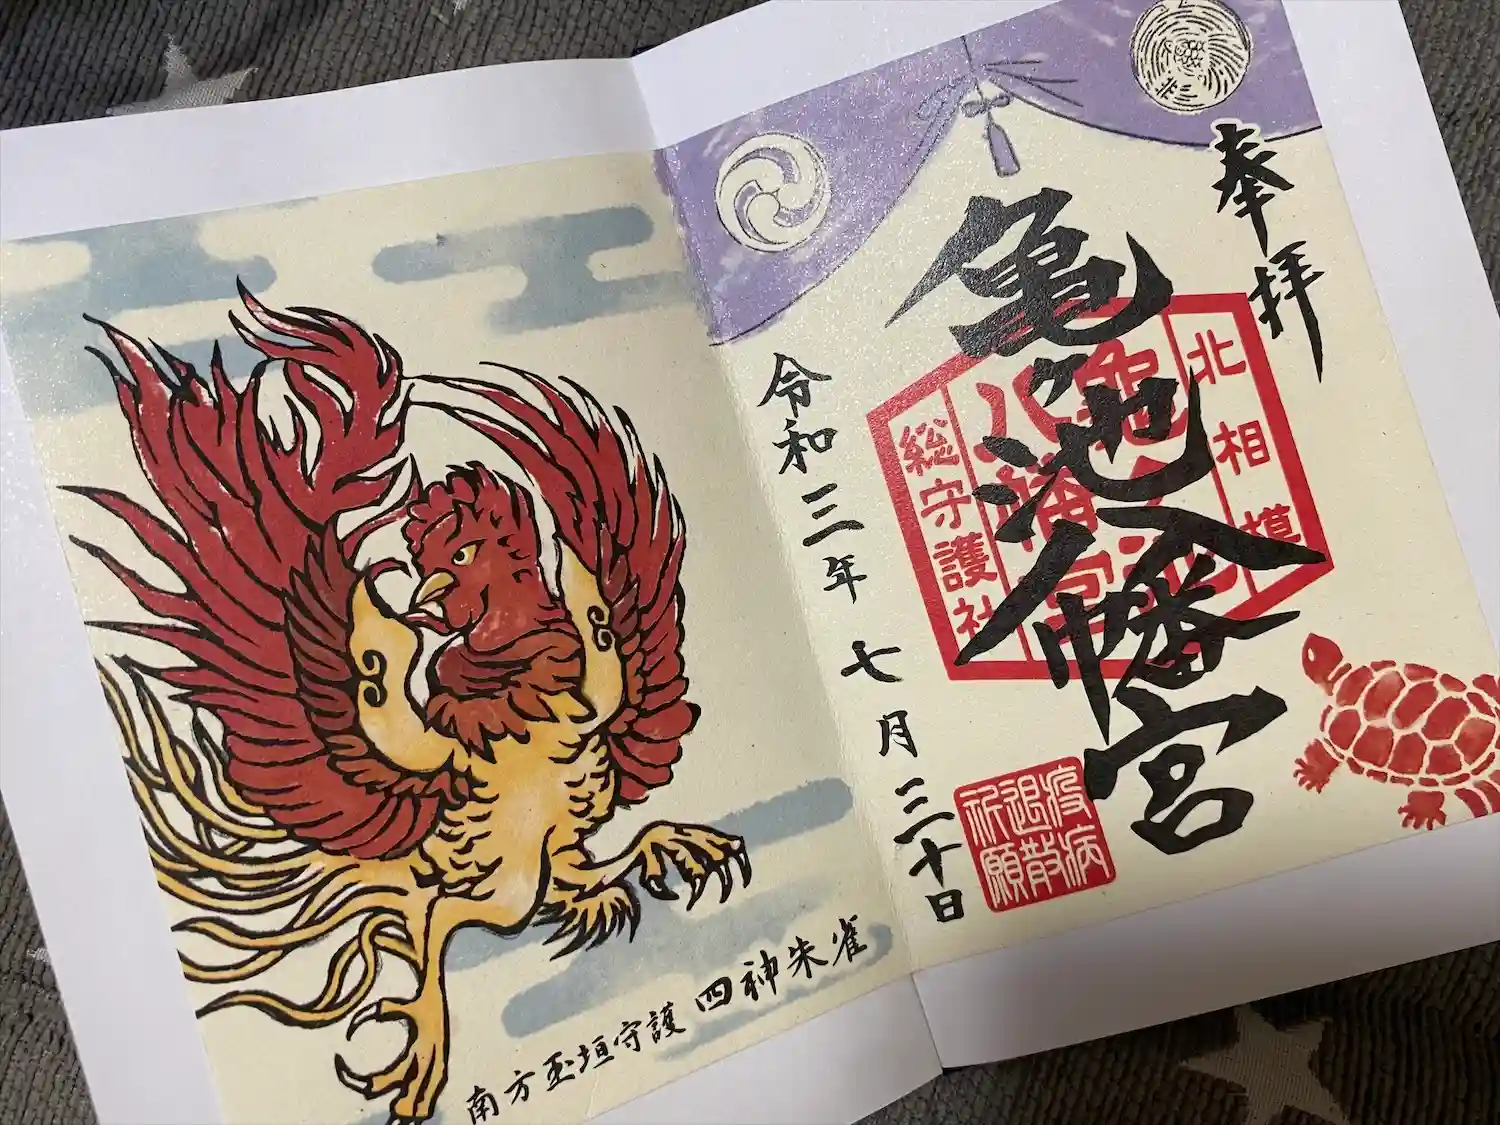 奉拝
亀ヶ池八幡宮
北相模
亀ヶ池
八幡宮
総守護社
疫病
退散
祈願
令和三年七月三十日
南方玉垣守護 四神朱雀